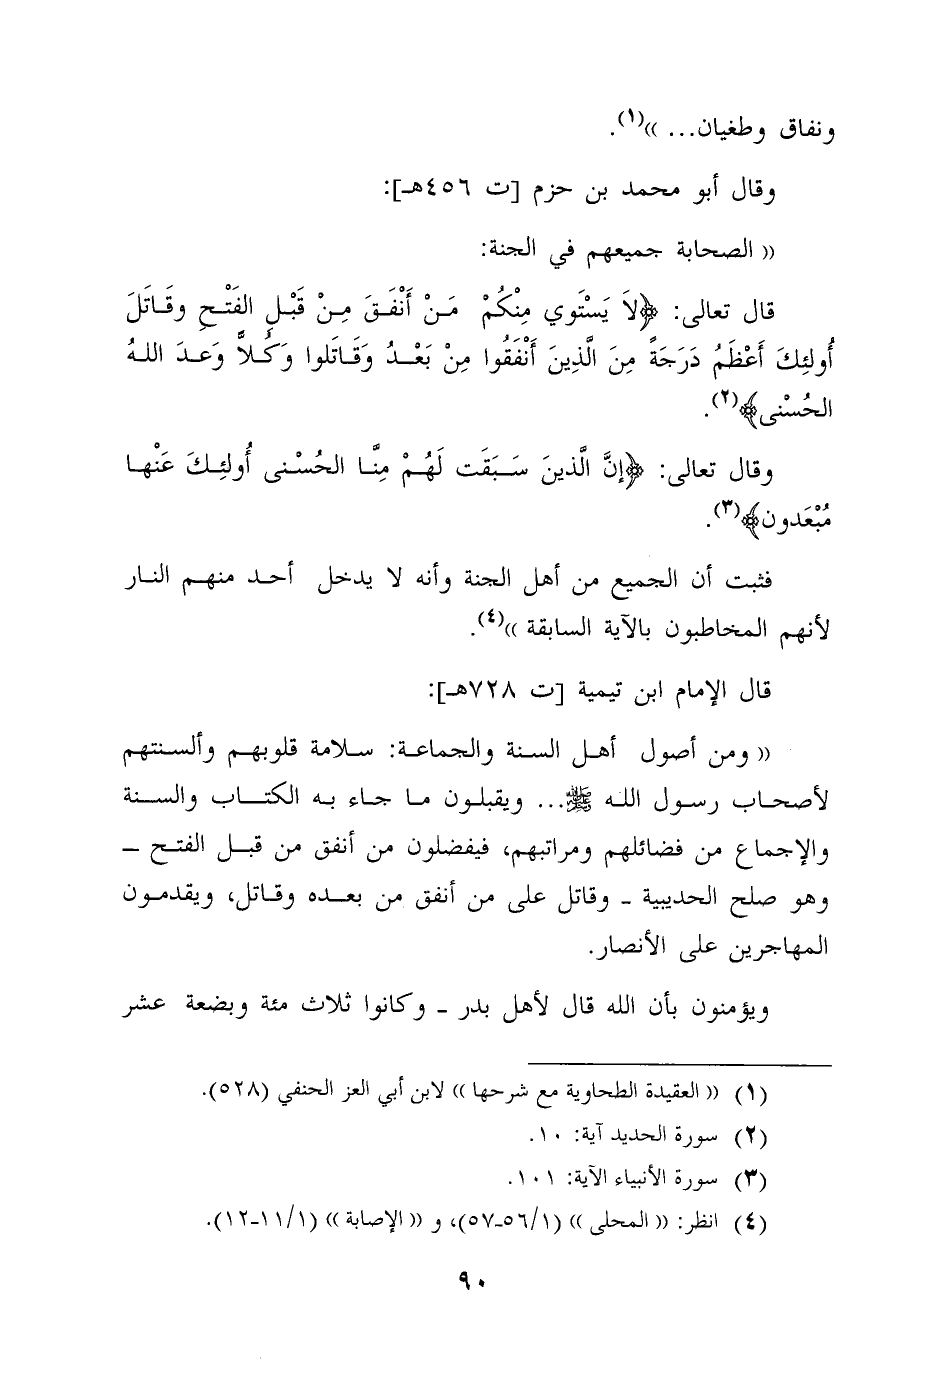 ونفاق وطغيان... »(١).
وقال أبو محمد بن حزم [ت ٤٥٦هـ]:
« الصحابة جميعهم في الجنة:
قال تعالى: ﴿لَا يَسْتَوِي مِنْكُمْ مَـنْ أَنْفَـقَ مِـنْ قَبْـلِ الفَتْـحِ وقَـاتَلَ
أُولئِكَ أَعْظَمُ دَرَجَةً مِنَ الَّذِينَ أَنْفَقُوا مِنْ بَعْـدُ وَقَـاتَلوا وَكُـلاًّ وَعـدَ اللهُ
الحُسْنى﴾(٢).
وقال تعالى: ﴿إنَّ الَّذينَ سَـبَقَت لَهُـمْ مِنَّـا الحُسْـنى أُولئِـكَ عَنْهـا
مُبْعَدون﴾(٣).
فثبت أن الجميع من أهل الجنة وأنه لا يدخل أحـد منهـم النـار
لأنهم المخاطبون بالآية السابقة »(٤).
قال الإمام ابن تيمية [ت ٧٢٨هـ]:
« ومن أصول أهـل السـنة والجماعـة: سـلامة قلوبهـم وألسـنتهم
لأصحاب رسول الله ﷺ... ويقبلون ما جاء به الكتـاب والسـنة
والإجماع من فضائلهم ومراتبهم، فيفضلون من أنفق من قبـل الفتـح ــ
وهو صلح الحديبية ـ وقاتل على من أنفق من بعـده وقـاتل، ويقدمـون
المهاجرين على الأنصار.
ويؤمنون بأن الله قال لأهل بدر ـ وكانوا ثلاث مئة وبضعة عشر
(١) « العقيدة الطحاوية مع شرحها » لابن أبي العز الحنفي (٥٢٨).
(٢) سورة الحديد آية: ١٠.
(٣) سورة الأنبياء الآية: ١٠١.
(٤) انظر: « المحلى » (٥٦/١-٥٧)، و « الإصابة » (١١/١-١٢).
٩٠